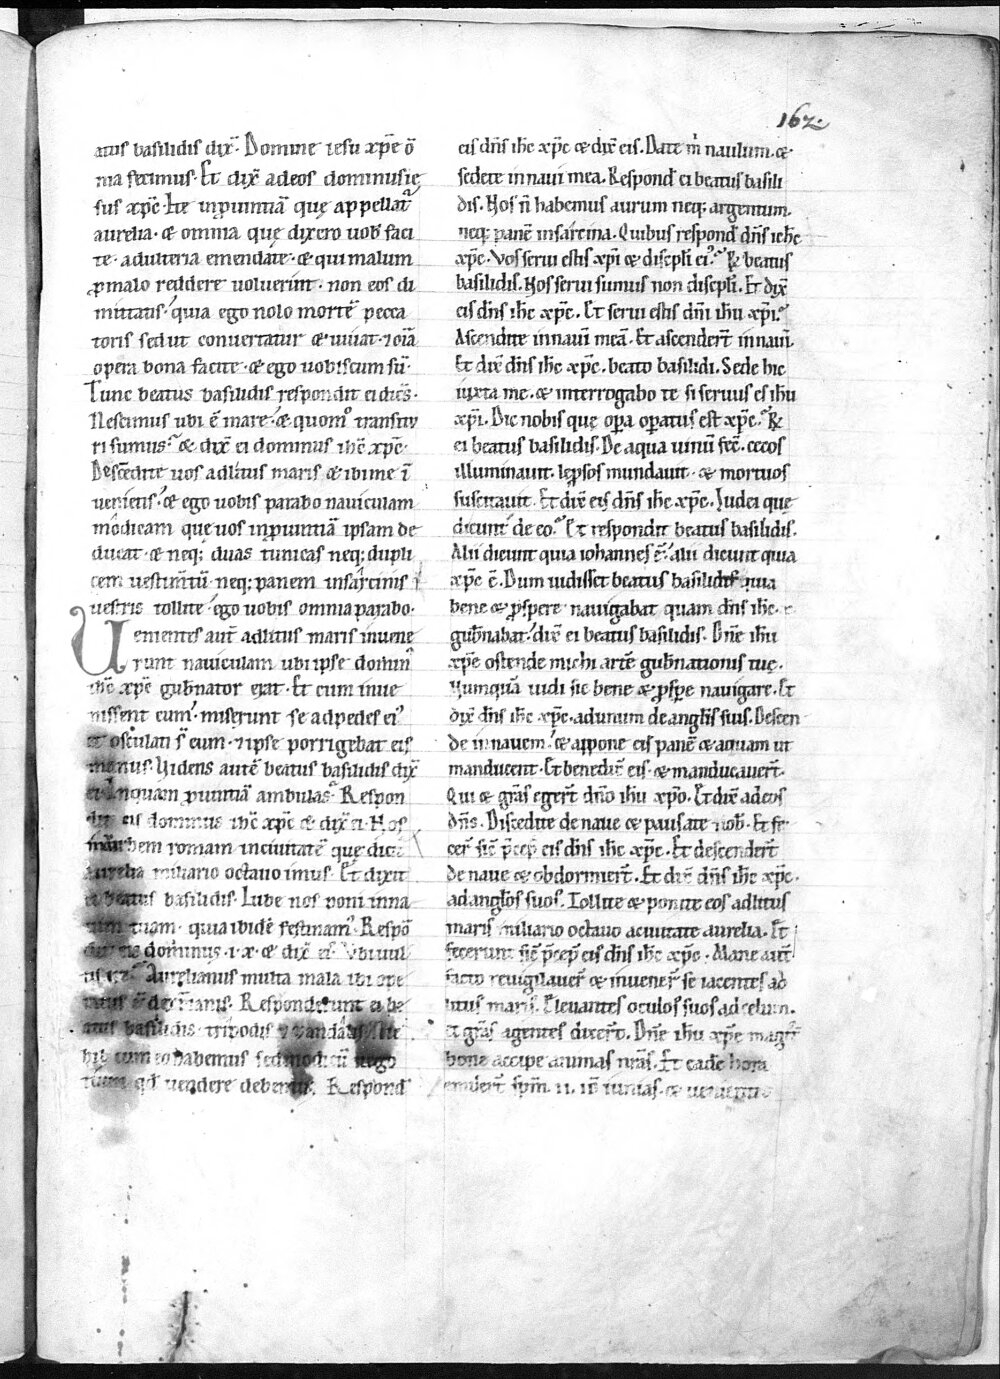 162.
atus basilidis dix̄. Domine iesu xp̄e ō
nia fecimus. Et dix̄ ad eos dominus ie
sus xp̄c. Ite in ꝓuintiā que appellat᷑
aurelia. & omnia quę dixero uob̄ faci
te. adulteria emendate. & qui malum
ꝓ malo reddere uoluerint. non eos di
mittatis. quia ego nolo mortē pecca
toris sed ut conuertatur & uiuat. ⁊ oīa
opera bona facite. & ego uobiscum sū.
Tunc beatus basilidis respondit ei dicēs.
Nescimus ubi ē mare. & quom̊ transitu
ri sumus. & dix̄ ei dominus ih̄c xp̄c.
Descēdite uos ad litus maris & ibi me ī
uenietis. & ego uobis parabo nauiculam
modicam que uos in ꝓuintiā ipsam de
ducat. & neq; duas tunicas neq; dupli
cem uestim̄tū. neq; panem in sarcinis
uestris tollite. ego uobis omnia parabo.
Uenientes aut̄ ad litus maris inuene
runt nauiculam ubi ipse domin᷒
ih̄c xp̄c gub̄nator erat. Et cum inue
nissent eum. miserunt se ad pedes ei᷒
et osculati s̄ eum. ⁊ ipse porrigebat eis
manus. Uidens autē beatus basilidis dix̄
ei. In quam ꝓuintiā ambulas. Respon
dit eis dominus ih̄c xp̄c & dix̄ ei. Nos
romam in ciuitatē quę dicit
aurelia miliario octauo imus. Et dixit
ei beatus basilidis. Iube nos poni in na
uim tuam. quia ibidē festinam᷒. Respō
dit eis dominus .i.x. & dix̄ ei. Ubi uul
tis ire. Aurelianus multa mala ibi ope
ratus ē de xp̄ianis. Responderunt ei be
atus basilidis
habemus sed modicū
qd̄ uendere debemus. Respond̄
eis dn̄s ih̄c xp̄c & dix̄ eis. Date m̄ naulum. &
sedete in naui mea. Respond̄ ei beatus basili
dis. Nos n̄ habemus aurum neq; argentum.
neq; panē in sarcina. Quibus respond̄ dn̄s ieh̄c
xp̄c. Vos serui estis xp̄i & discipl̄i ei᷒. Et beatus
basilidis. Nos serui sumus non discipl̄i. Et dix̄
eis dn̄s ih̄c xp̄c. Et serui estis dn̄i ih̄u xp̄i.
Ascendite in naui meā. Et ascender̄t in nauī.
Et dix̄ dn̄s ih̄c xp̄c. beato basilidi. Sede hic
iuxta me. & interrogabo te si seruus es ih̄u
xp̄i. Dic nobis quę oꝑa oꝑatus est xp̄c. Et
ei beatus basilidis. De aqua uinū fec̄. cecos
illuminauit. leprosos mundauit. & mortuos
suscitauit. Et dix̄ eis dn̄s ih̄c xp̄c. Iudei que
dicunt de eo. Et respondit beatus basilidis.
Alii dicunt quia iohannes ē. alii dicunt quia
xp̄c ē. Dum uidisset beatus basilidis quia
bene & ꝓspere nauigabat quam dn̄s ih̄c
gub̄nabat. dix̄ ei beatus basilidis. Dn̄e ih̄u
xp̄e ostende michi artē gub̄nationis tuę.
Numquā uidi sic bene & ꝓspe nauigare. Et
dix̄ dn̄s ih̄c xp̄c. ad unum de angl̄is suis. Descen
de in nauem. & appone eis panē & aquam ut
manducent. Et benedix̄ eis. & manducauer̄t.
Qui & grās eger̄t dn̄o ih̄u xp̄o. Et dix̄ ad eos
dn̄s. Discedite de naue & pausate uob̄. Et fe
cer̄ sic̄ p̄cep̄ eis dn̄s ih̄c xp̄c. Et descender̄t
de naue & obdormier̄t. Et dix̄ dn̄s ih̄c xp̄c.
ad angl̄os suos. Tollite & ponite eos ad litus
maris miliario octauo a ciuitate aurelia. Et
fecerunt sic̄ p̄cep̄ eis dn̄s ih̄c xp̄c. Mane aut̄
facto reuigilauer̄ & inuener̄ se iacentes ad
litus maris. Eleuantes oculos suos ad celum.
et grās agentes dixer̄t. Dn̄e ih̄u xp̄e magr̄
bone accipe animas nr̄as. Et eadē hora
emiser̄t sp̄m. ii. id̄ iunias. &